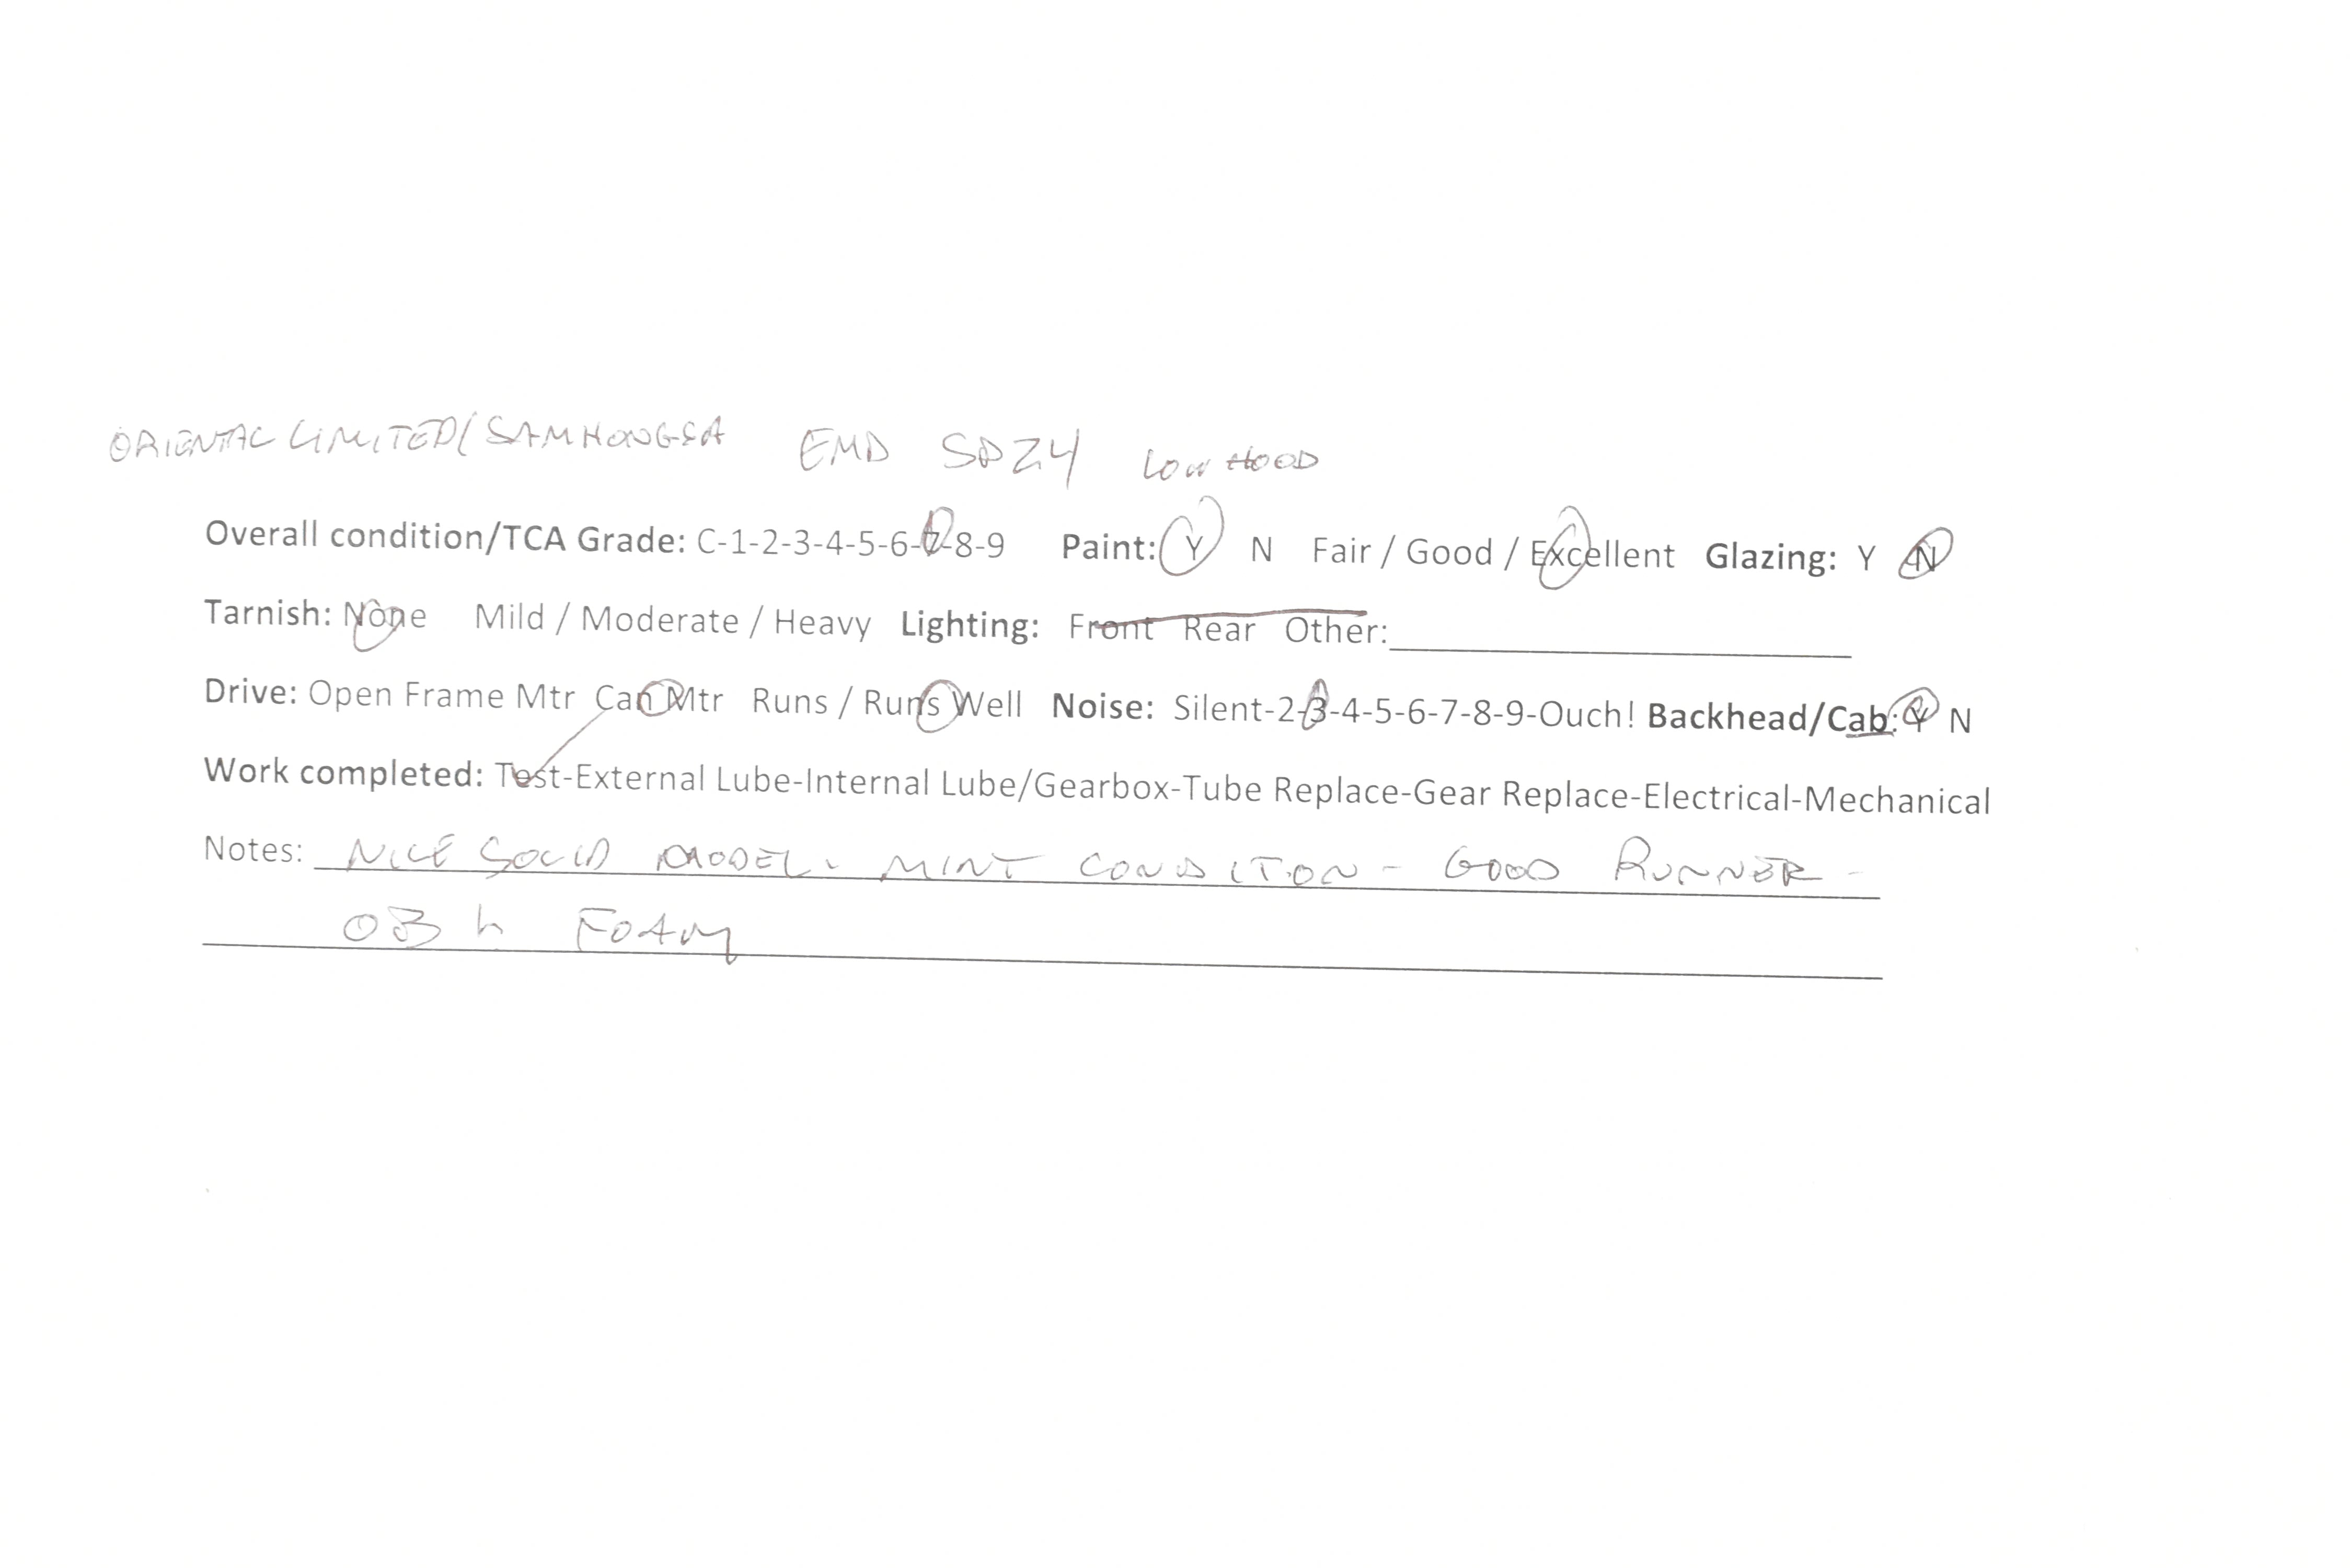 ORIENTAL LIMITED/SAMHONGSA EMD SD24 LOW HOOD
Overall condition/TCA Grade: C-1-2-3-4-5-6-7-8-9 Paint: Y N Fair / Good / Excellent Glazing: Y N
Tarnish: None Mild / Moderate / Heavy Lighting: Front Rear Other:
Drive: Open Frame Mtr Can Mtr Runs / Runs Well Noise: Silent-2-3-4-5-6-7-8-9-Ouch! Backhead/Cab: Y N
Work completed: Test-External Lube-Internal Lube/Gearbox-Tube Replace-Gear Replace-Electrical-Mechanical
Notes: NICE SOLID MODEL. MINT CONDITION - GOOD RUNNER -
FOAM